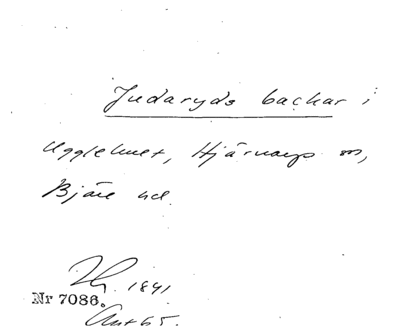 Judaryds backar i
Ugglehult, Hjärnarps sn,
Bjäre hd.
1841
Nr 7086.